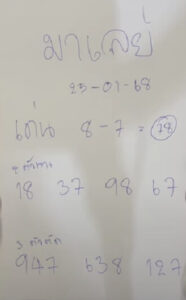 มาเลย์
25-01-68
เด่น 8-7 = 78
2 ตัว
18 37 98 67
3 ตัว
947 638 127